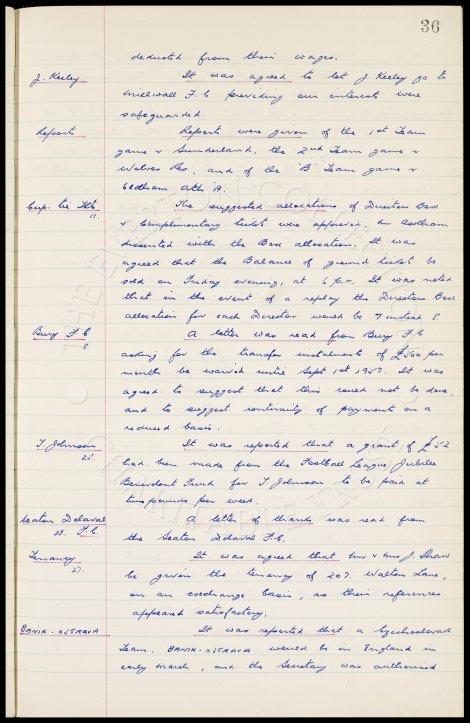 36
deducted from their wages.
J. Keeley It was agreed to let J. Keeley go to
Millwall F.C. providing our interests were
safeguarded.
Reports Reports were given of the 1st Team
game v Sunderland, the 2nd Team game v
Wolves Res, and of the 'B' Team game v
Oldham Ath 'A'.
Cup. tie Tkts. The suggested allocations of Directors Box
11.
& Complimentary tickets were approved,
dissented with the Box allocation. It was
agreed that the Balance of ground tickets be
sold on Friday evening, at 6 p.m. It was noted
that in the event of a replay the Directors Box
allocation for each Director would be 7 instead 8.
Bury F.C. A letter was read from Bury F.C.
8
asking for the transfer instalments of £500 per
month be waived until Sept 1st 1957. It was
agreed to suggest that this could not be done,
and to suggest continuity of payment on a
reduced basis.
T. Johnson It was reported that a grant of £52
25
had been made from the Football League Jubilee
Benevolent Fund for T. Johnson to be paid at
two pounds per week.
Seaton Delaval A letter of thanks was read from
F.C.
the Seaton Delaval F.C.
Tenancy It was agreed that Mr & Mrs J. Shaw
27.
be given the tenancy of 207. Walton Lane,
on an exchange basis, as their references
appeared satisfactory.
BANIK-OSTRAVA It was reported that a Czechoslovak
Team, BANIK-OSTRAVA would be in England in
early March, and the Secretary was authorised
THE EVERTON COLLECTION
CHARITABLE TRUST